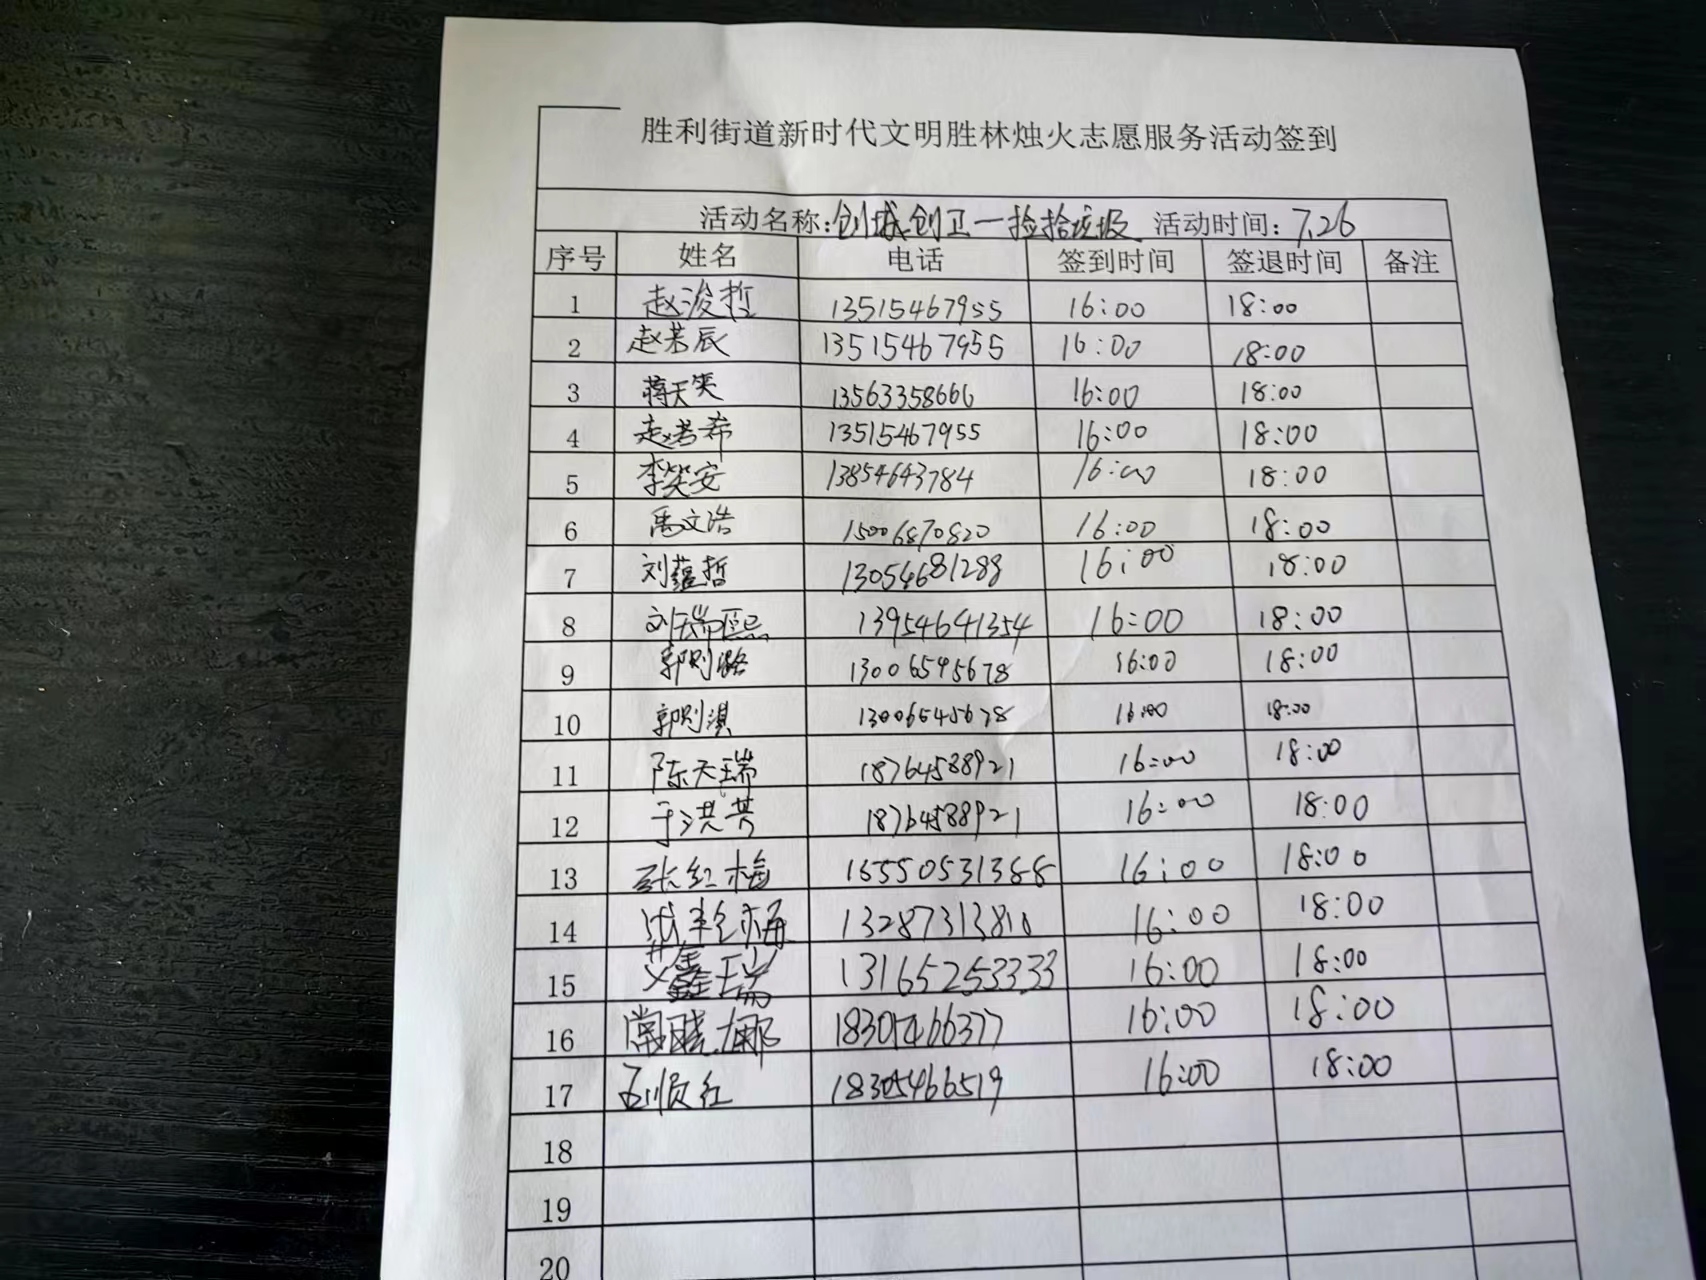 胜利街道新时代文明胜林烛火志愿服务活动签到
活动名称:创城创卫一捡拾垃圾 活动时间:7.26
序号 姓名 电话 签到时间 签退时间 备注
1 赵浚哲 13515467955 16:00 18:00
2 赵若辰 13515467955 16:00 18:00
3 蒋天笑 13563358666 16:00 18:00
4 赵若希 13515467955 16:00 18:00
5 李笑安 13854643784 16:00 18:00
6 禹文浩 15006870820 16:00 18:00
7 刘蕴哲 13054681288 16:00 18:00
8 刘瑞熙 13954641354 16:00 18:00
9 郭则潞 13006545678 16:00 18:00
10 郭则淇 13006545678 16:00 18:00
11 陈天瑞 18764538921 16:00 18:00
12 于洪芳 18764538921 16:00 18:00
13 张红梅 16550531388 16:00 18:00
14 13287313810 16:00 18:00
15 艾鑫瑞 13165253333 16:00 18:00
16 常晓娜 16:00 18:00
17 孟顺红 18305466519 16:00 18:00
18
19
20